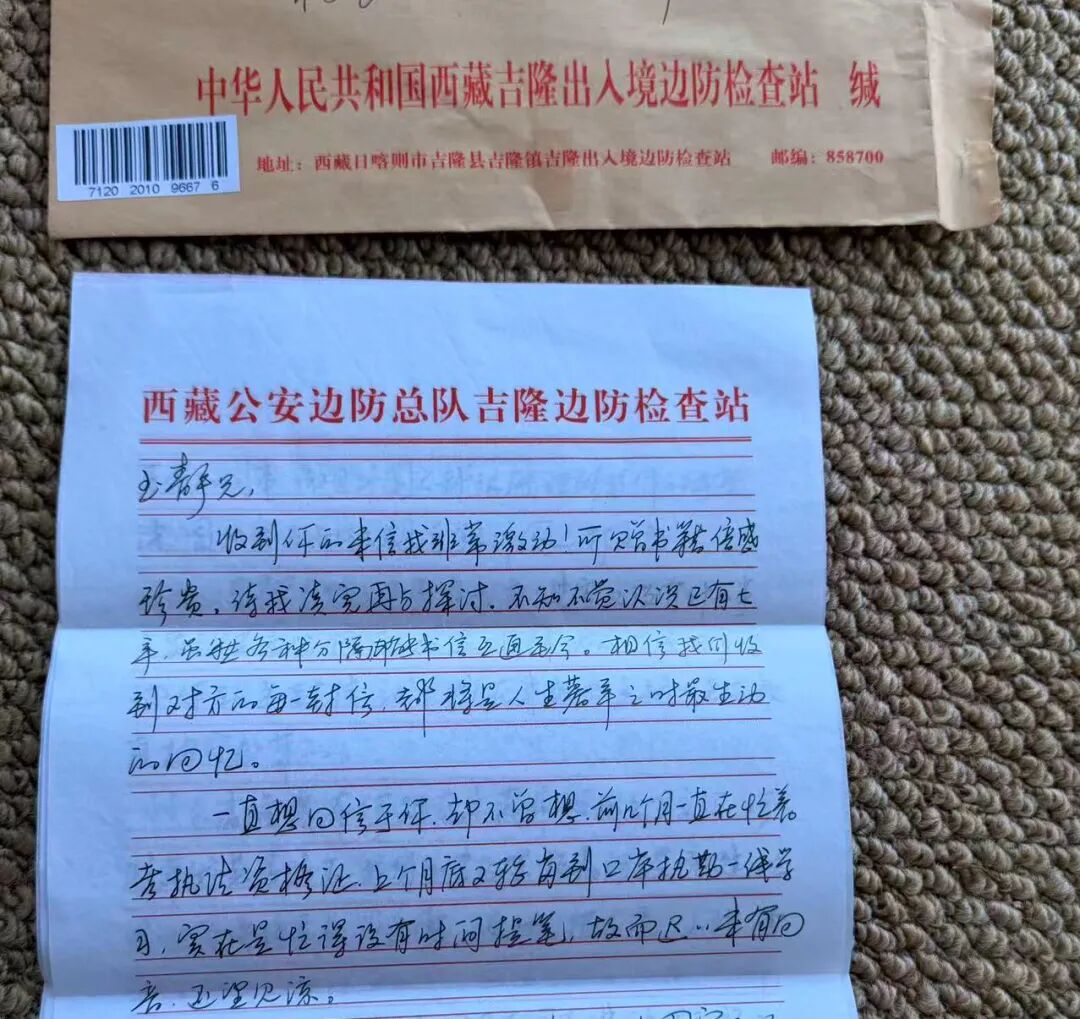 中华人民共和国西藏吉隆出入境边防检查站 缄
地址：西藏日喀则市吉隆县吉隆镇吉隆出入境边防检查站 邮编：858700
7120 2010 9667 6
西藏公安边防总队吉隆边防检查站
玉静兄，
收到你的来信我非常激动！所赠书籍倍感
珍贵，待我读完再与探讨。不知不觉认识已有七
年，虽然各种分隔却能书信互通至今。相信我们收
到对方的每一封信，都将是人生暮年之时最生动
的回忆。
一直想回信于你，却不曾想，前几个月一直在忙着
考执法资格证，上个月底又转角到口岸执勤一线学
习，实在是忙得没有时间提笔，故而迟迟未有回
音，还望见谅。